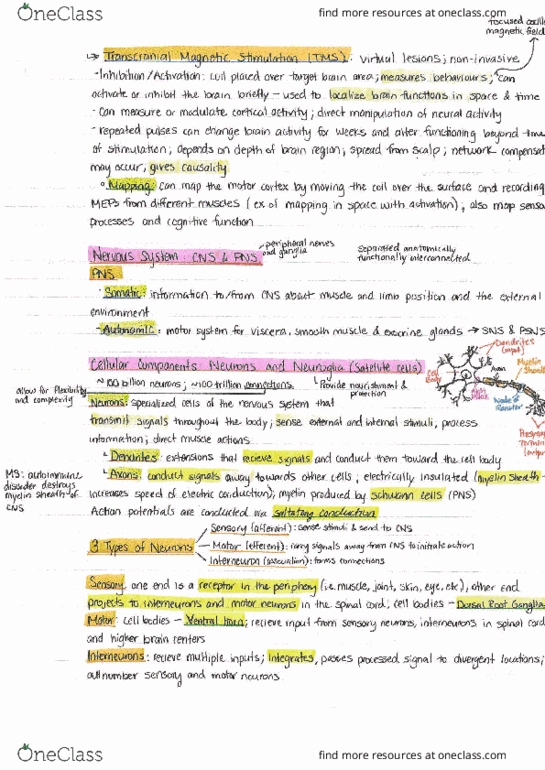 OneClass
find more resources at oneclass.com
focused oscilla
magnetic field
↳ Transcranial Magnetic Stimulation (TMS): virtual lesions; non-invasive
- Inhibition/Activation: coil placed over target brain area; measures behaviours; can
activate or inhibit the brain briefly - used to localize brain functions in space & time
- Can measure or modulate cortical activity; direct manipulation of neural activity
- repeated pulses can change brain activity for weeks and alter functioning beyond time
of stimulation; depends on depth of brain region; spread from scalp; network compensat
may occur, gives causality
Mapping: can map the motor cortex by moving the coil over the surface and recording
MEPs from different muscles (ex of mapping in space with activation); also map senso
processes and cognitive function
Nervous System: CNS & PNS
peripheral nerves
and ganglia
Separated anatomically
functionally interconnected
PNS
- Somatic: information to/from CNS about muscle and limb position and the external
environment
- Autonomic: motor system for viscera, smooth muscle & exocrine glands → SNS & PSNS
Cellular Components: Neurons and Neuroglia (Satellite cells)
~100 billion neurons; ~100 trillion connections.
↳ Provide nourishment &
protection
allows for flexibility
and complexity
Dendrites
(input)
Cell
Body
Axon
Myelin
Sheath
Node of
Ranvier
Neurons: specialized cells of the nervous system that
transmit signals throughout the body; sense external and internal stimuli, process
information; direct muscle actions
↳ Dendrites: extensions that recieve signals and conduct them toward the cell body
↳ Axons: conduct signals away towards other cells; electrically insulated (myelin sheath -
increases speed of electric conduction); myelin produced by schwann cells (PNS)
MS: autoimmune
disorder destroys
myelin sheath of
CNS
Action potentials are conducted via saltatory conduction
3 Types of Neurons
Sensory (afferent): sense stimuli & send to CNS
Motor (efferent): carry signals away from CNS to initiate action
Interneuron (association): forms connections
Sensory: one end is a receptor in the periphery (i.e. muscle, joint, skin, eye, etc), other end
projects to interneurons and motor neurons in the spinal cord; cell bodies - Dorsal Root Ganglia
Motor: cell bodies - Ventral Horn; recieve input from sensory neurons, interneurons in spinal cord
and higher brain centers
Interneurons: recieve multiple inputs; integrates, passes processed signal to divergent locations;
outnumber sensory and motor neurons
OneClass
find more resources at oneclass.com